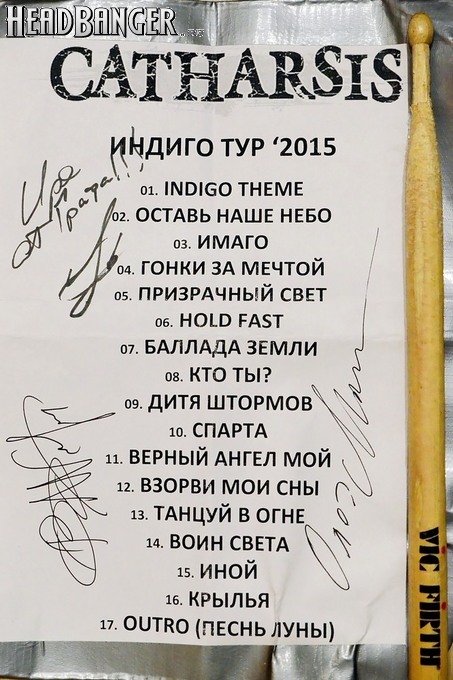 HEADBANGER.RU
CATHARSIS
ИНДИГО ТУР ‘2015
01. INDIGO THEME
02. ОСТАВЬ НАШЕ НЕБО
03. ИМАГО
04. ГОНКИ ЗА МЕЧТОЙ
05. ПРИЗРАЧНЫЙ СВЕТ
06. HOLD FAST
07. БАЛЛАДА ЗЕМЛИ
08. КТО ТЫ?
09. ДИТЯ ШТОРМОВ
10. СПАРТА
11. ВЕРНЫЙ АНГЕЛ МОЙ
12. ВЗОРВИ МОИ СНЫ
13. ТАНЦУЙ В ОГНЕ
14. ВОИН СВЕТА
15. ИНОЙ
16. КРЫЛЬЯ
17. OUTRO (ПЕСНЬ ЛУНЫ)
VIC FIRTH